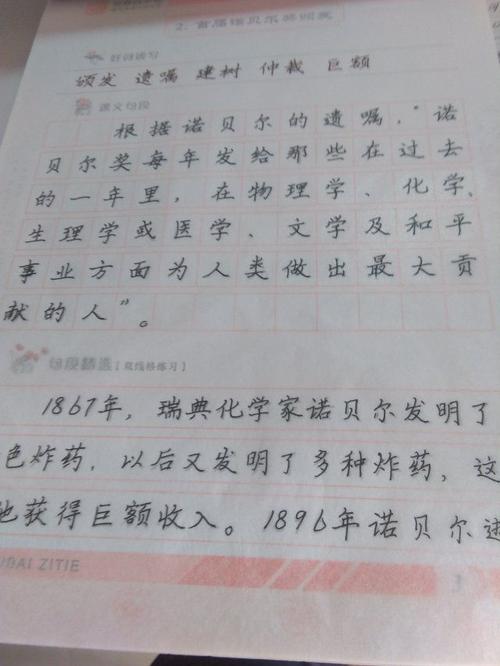 2. 首届诺贝尔奖颁奖
好词读写
颁发 遗嘱 建树 仲裁 巨额
课文句段
根据诺贝尔的遗嘱,“诺
贝尔奖每年发给那些在过去
的一年里,在物理学、化学、
生理学或医学、文学及和平
事业方面为人类做出最大贡
献的人”。
句段精选[双线格练习]
1867年,瑞典化学家诺贝尔发明了
色炸药,以后又发明了多种炸药,这
他获得巨额收入。1896年诺贝尔逝
UDAI ZITIE
3